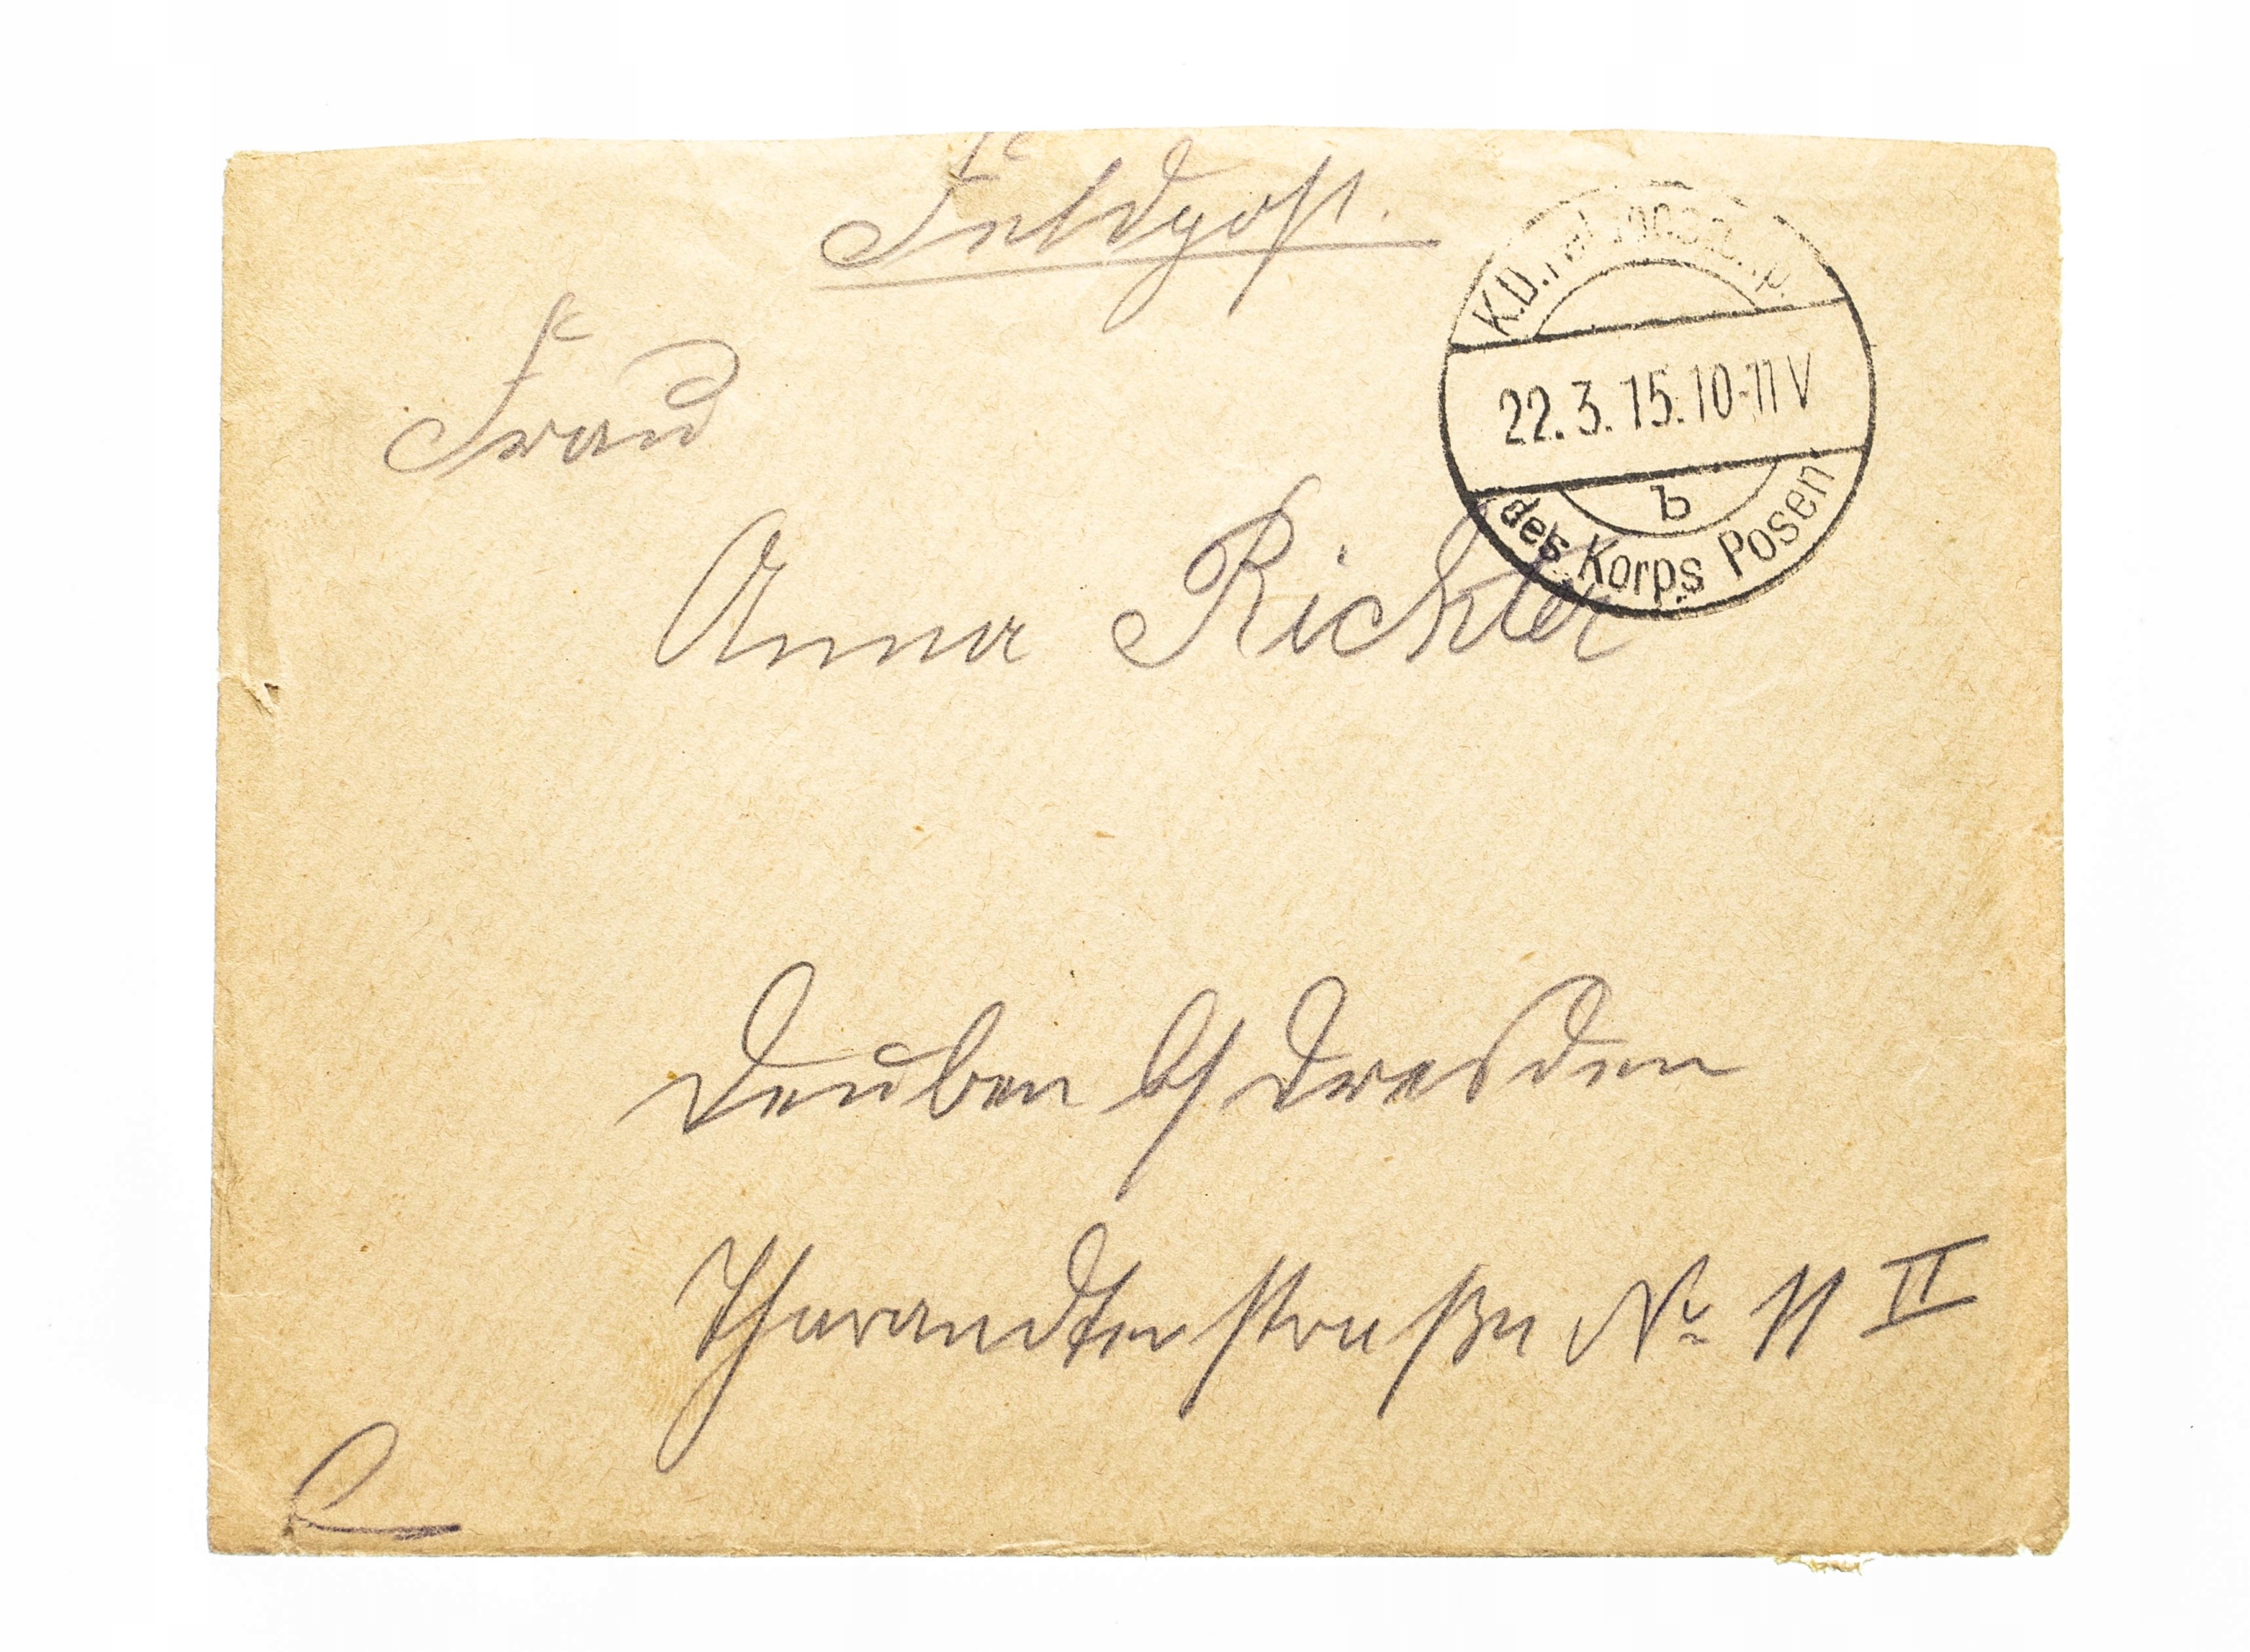 Feldpost.
K.D.
22.3.15.10-11V
b
des Korps Posen
Frau
Anna Richter
Deuben b/ Dresden
Tharandterstraße No 11 II